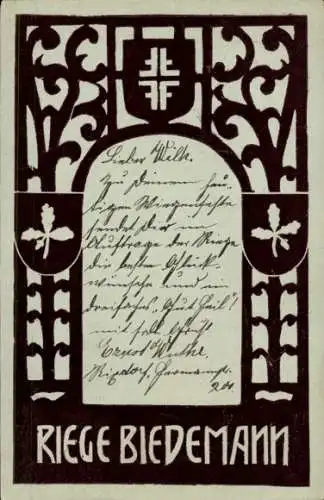 Lieber Willi.
Zu Deinem heu-
tigen Wiegenfeste
sendet Dir im
Auftrage der Riege
die besten Glück-
wünsche und ein
dreifaches „Gut Heil"!
mit
Ernst
Rixdorf,
RIEGE BIEDEMANN